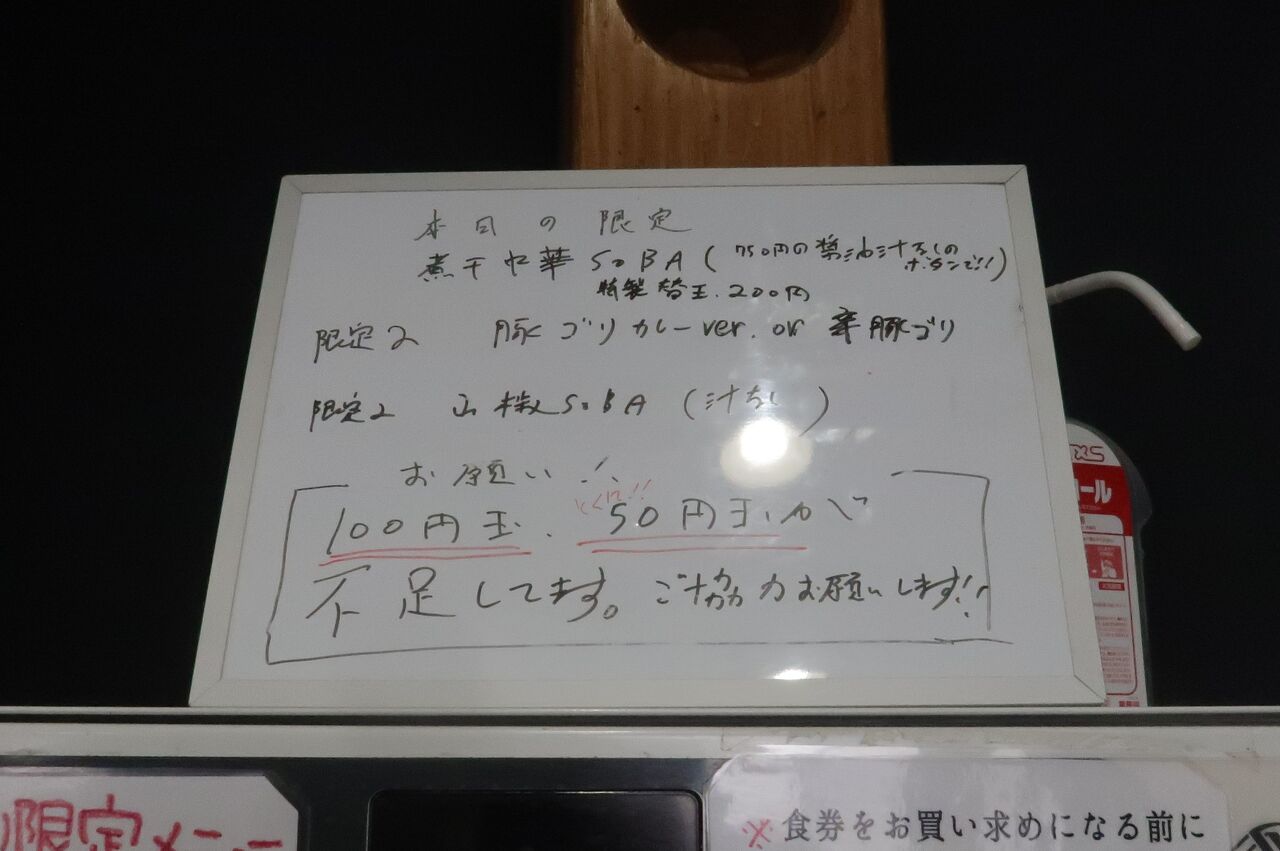 本日の限定
煮干中華SOBA(750円の醤油汁なしの
ボタンで!!)
特製替玉.200円
限定2 豚ゴリカレーver. or 辛豚ゴリ
限定2 山椒SOBA (汁なし)
お願い!
とくに!!
100円玉、50円玉が
不足してます。ご協力お願いします!!
限定メニュー
※食券をお買い求めになる前に